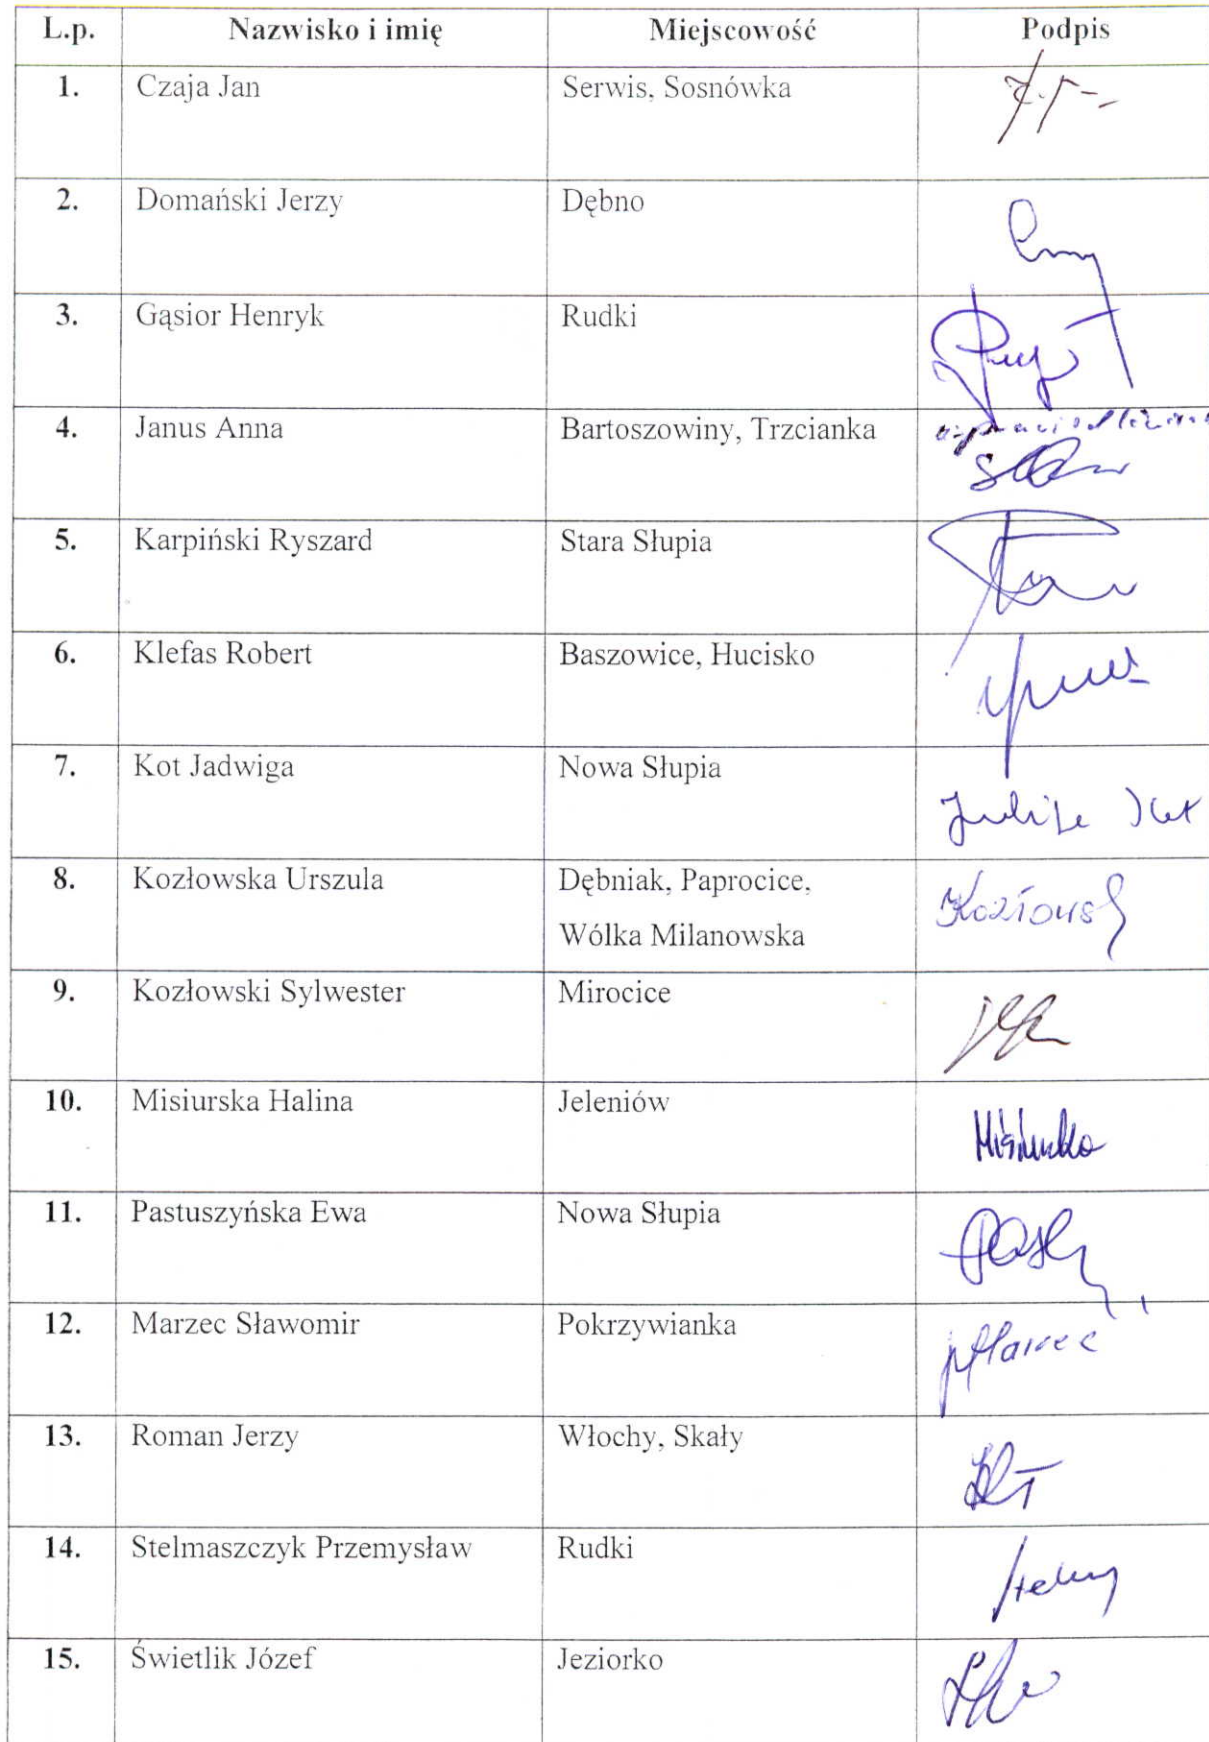 L.p. Nazwisko i imię Miejscowość Podpis
1. Czaja Jan Serwis, Sosnówka
2. Domański Jerzy Dębno
3. Gąsior Henryk Rudki
4. Janus Anna Bartoszowiny, Trzcianka
5. Karpiński Ryszard Stara Słupia
6. Klefas Robert Baszowice, Hucisko
7. Kot Jadwiga Nowa Słupia
8. Kozłowska Urszula Dębniak, Paprocice,
Wólka Milanowska
9. Kozłowski Sylwester Mirocice
10. Misiurska Halina Jeleniów
11. Pastuszyńska Ewa Nowa Słupia
12. Marzec Sławomir Pokrzywianka
13. Roman Jerzy Włochy, Skały
14. Stelmaszczyk Przemysław Rudki
15. Świetlik Józef Jeziorko